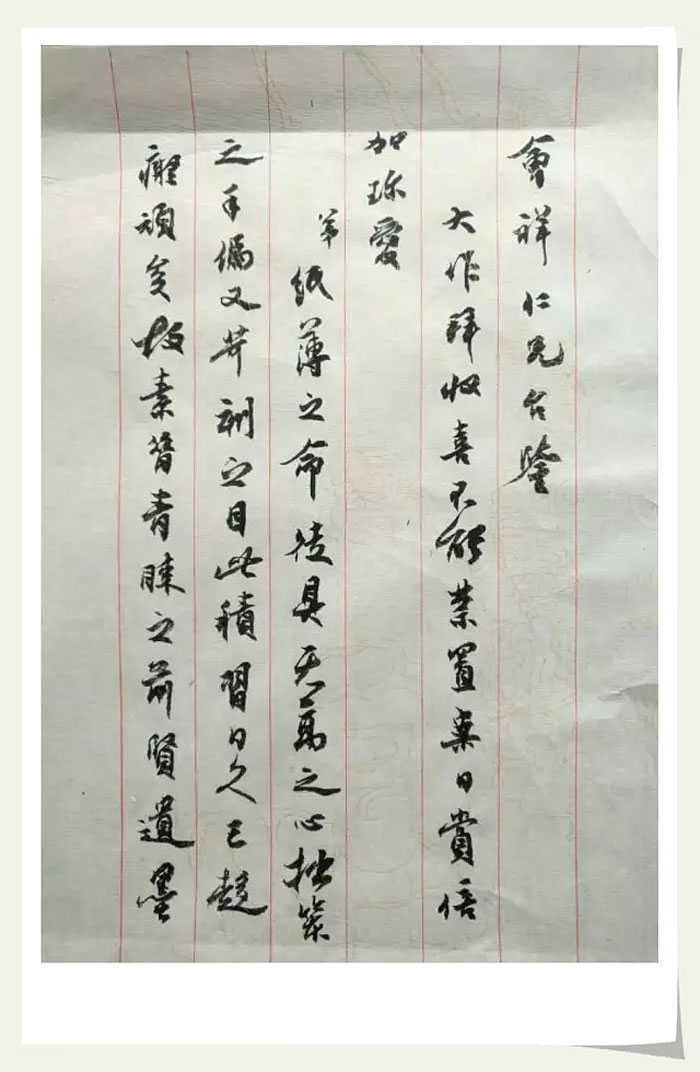 會祥仁兄台鑒
大作拜收喜不能禁置案日賞倍
加珍愛
弟紙薄之命徒具天高之心拙築
之手偏又芥刺之目此積習日久已趨
癡頑矣故素昔青睞之前賢遺墨